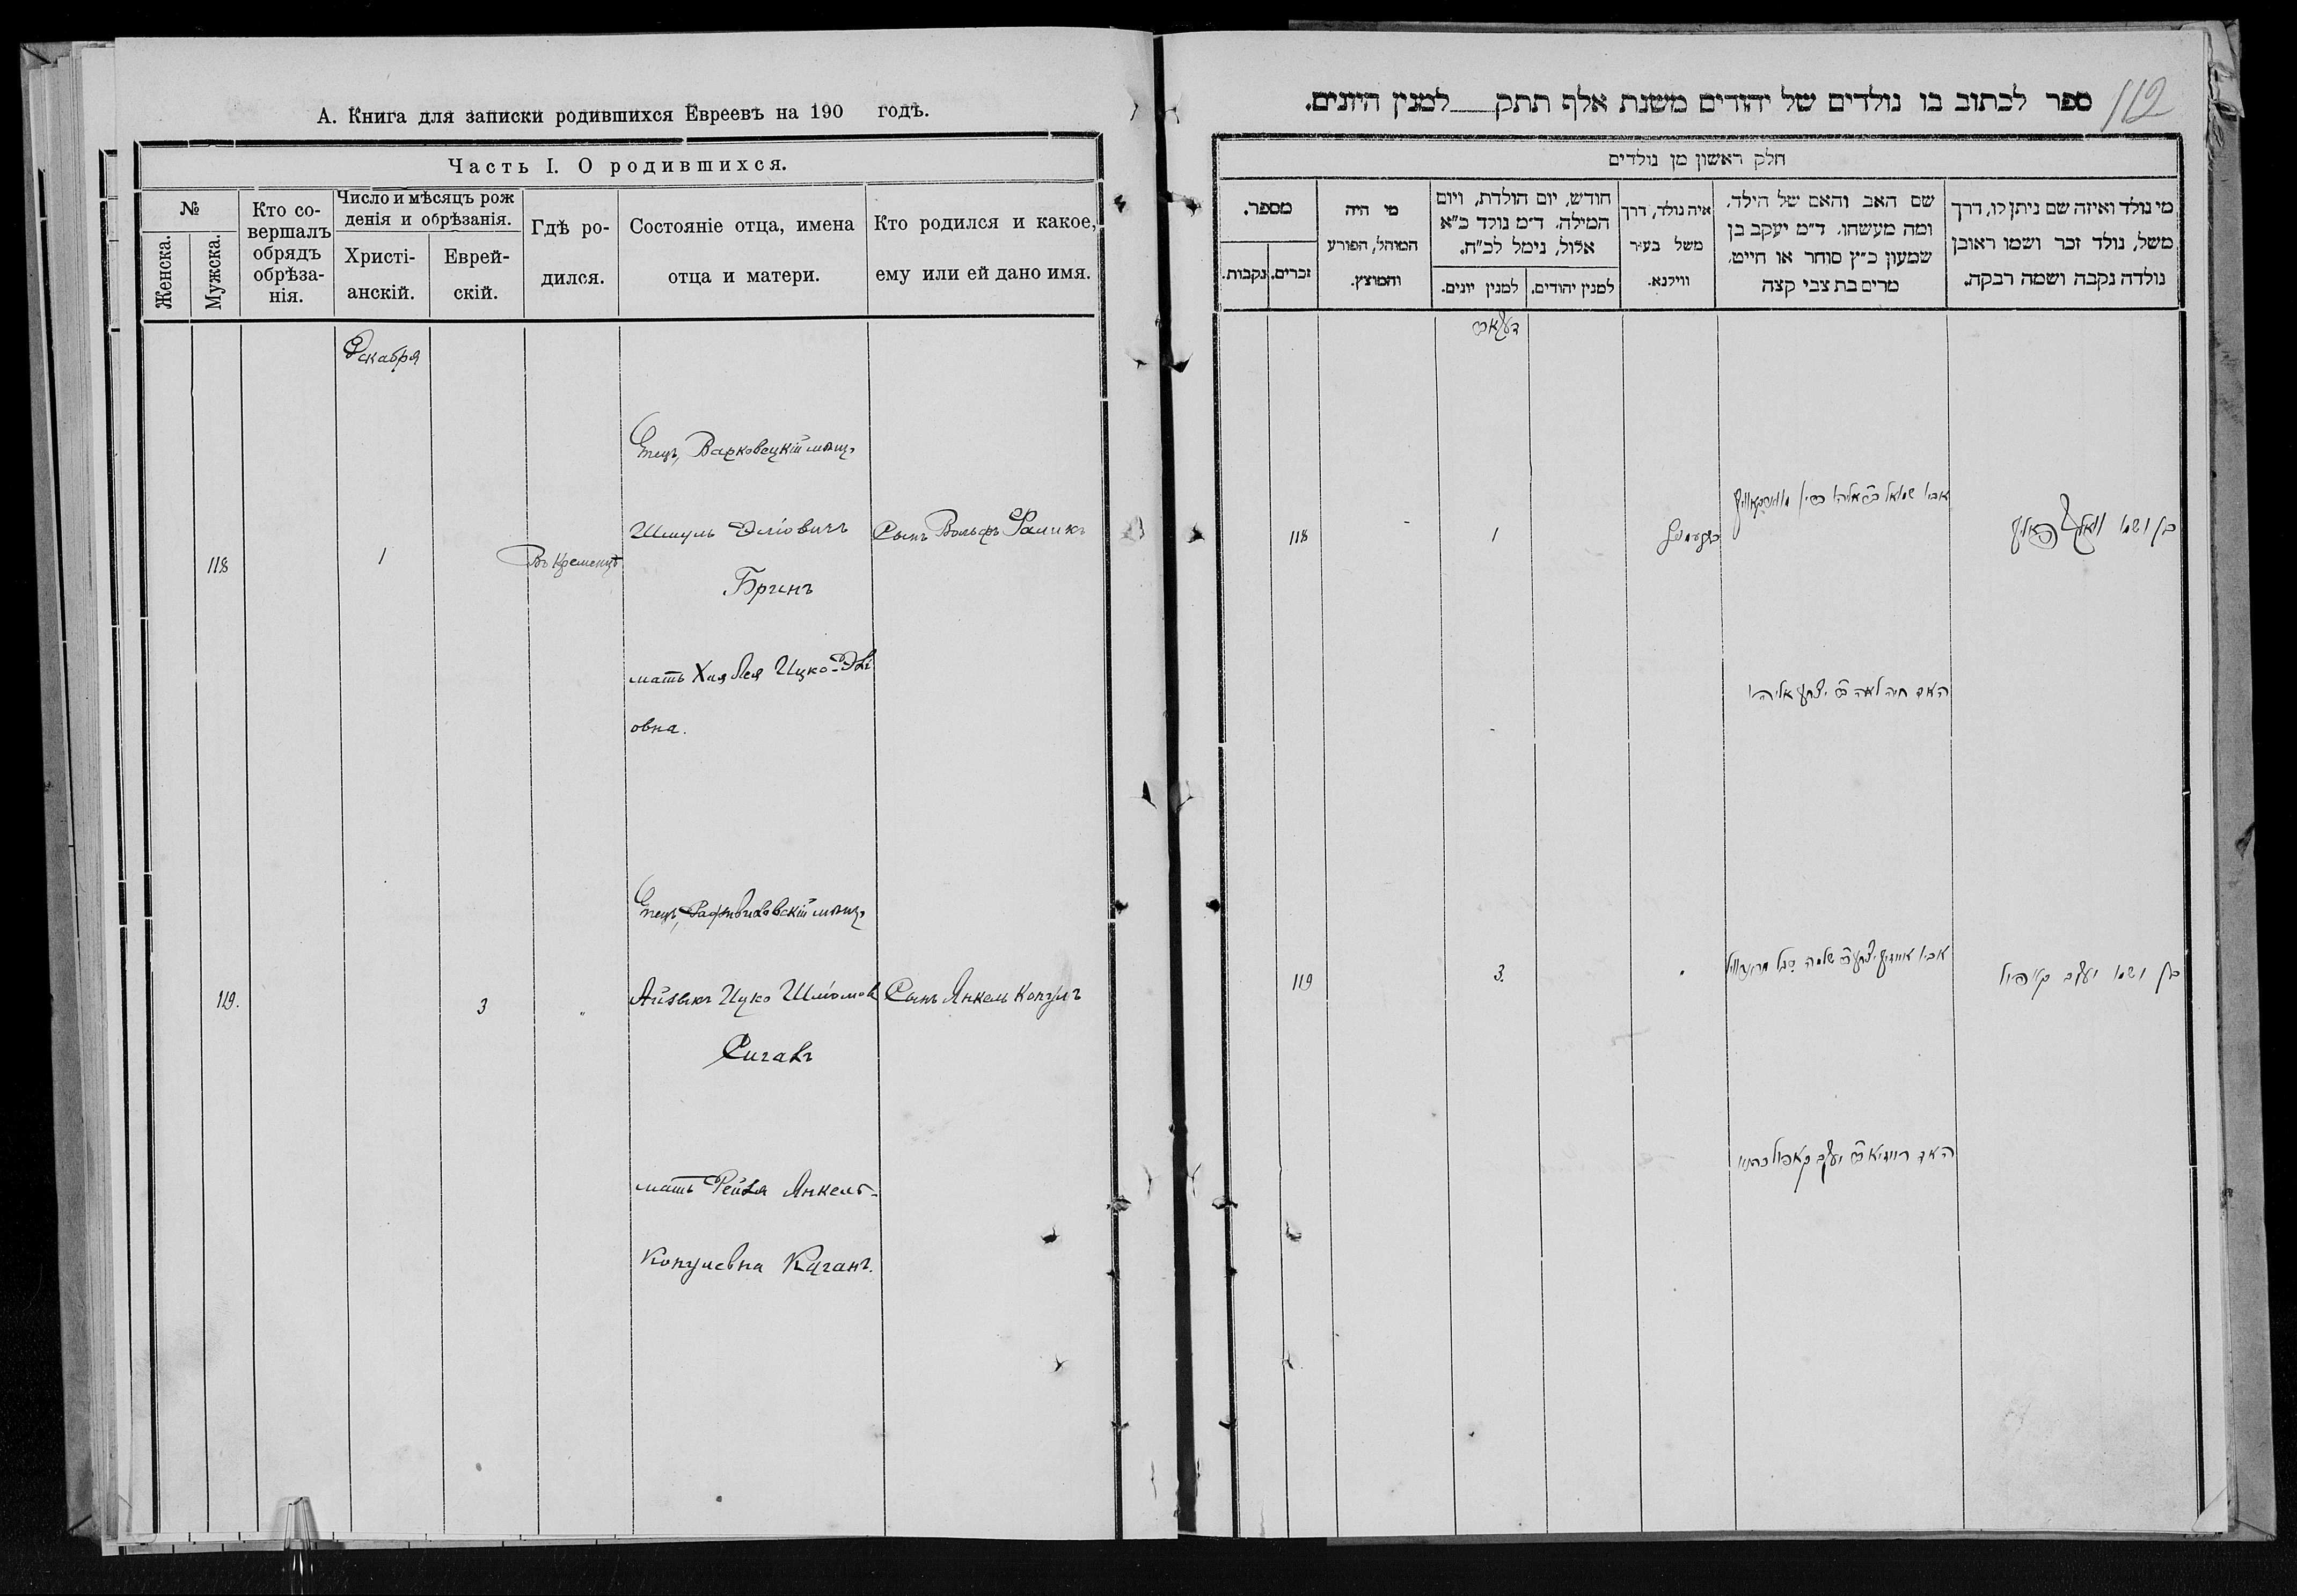 А. Книга для записки родившихся Евреевъ на 190 годъ.
Часть I. О родившихся.
№
Женска.
Мужска.
Кто со-
вершалъ
обрядъ
обрѣза-
нія.
Число и мѣсяцъ рож
денія и обрѣзанія.
Христі-
анскій.
Еврей-
скій.
Гдѣ ро-
дился.
Состояніе отца, имена
отца и матери.
Кто родился и какое,
ему или ей дано имя.
Декабря
118
1
Въ Кременцѣ
Отецъ, Варковецкій мѣщ.
Шмуль Эліовичъ
мать Хая Лея Ицко-Элі
овна.
Сынъ Вольфъ
119.
3
"
Отецъ, мѣщ.
Айзикъ Ицко Шліомов
мать Рейзя Янкель-
Копулевна Каганъ.
Сынъ Янкель Копулъ
112
ספר לכתוב בו נולדים של יהודים משנת אלף תתק למנין היונים.
חלק ראשון מן נולדים
מספר.
זכרים.
נקבות.
מי היה
המוהל, הפורע
והמוצץ.
חודש, יום הולדת, ויום
המילה. ד״מ נולד כ״א
אלול, נימל לכ״ח.
למנין יונים.
למנין יהודים.
איה נולד, דרך
משל בעיר
ווילנא.
שם האב והאם של הילד,
ומה מעשהו. ד״מ יעקב בן
שמעון כ״ץ סוחר או חייט,
מרים בת צבי קצה
מי נולד ואיזה שם ניתן לו, דרך
משל, נולד זכר ושמו ראובן
נולדה נקבה ושמה רבקה.
118
1
אביו שמואל ב״ר אליהו
האם חיה לאה בת יצחק אליהו
בן ושמו וואלף
119
3.
אביו אייזיק יצחק ב״ר שלמה
האם רייזיא בת יעקב קאפול
בן ושמו יעקב קאפול